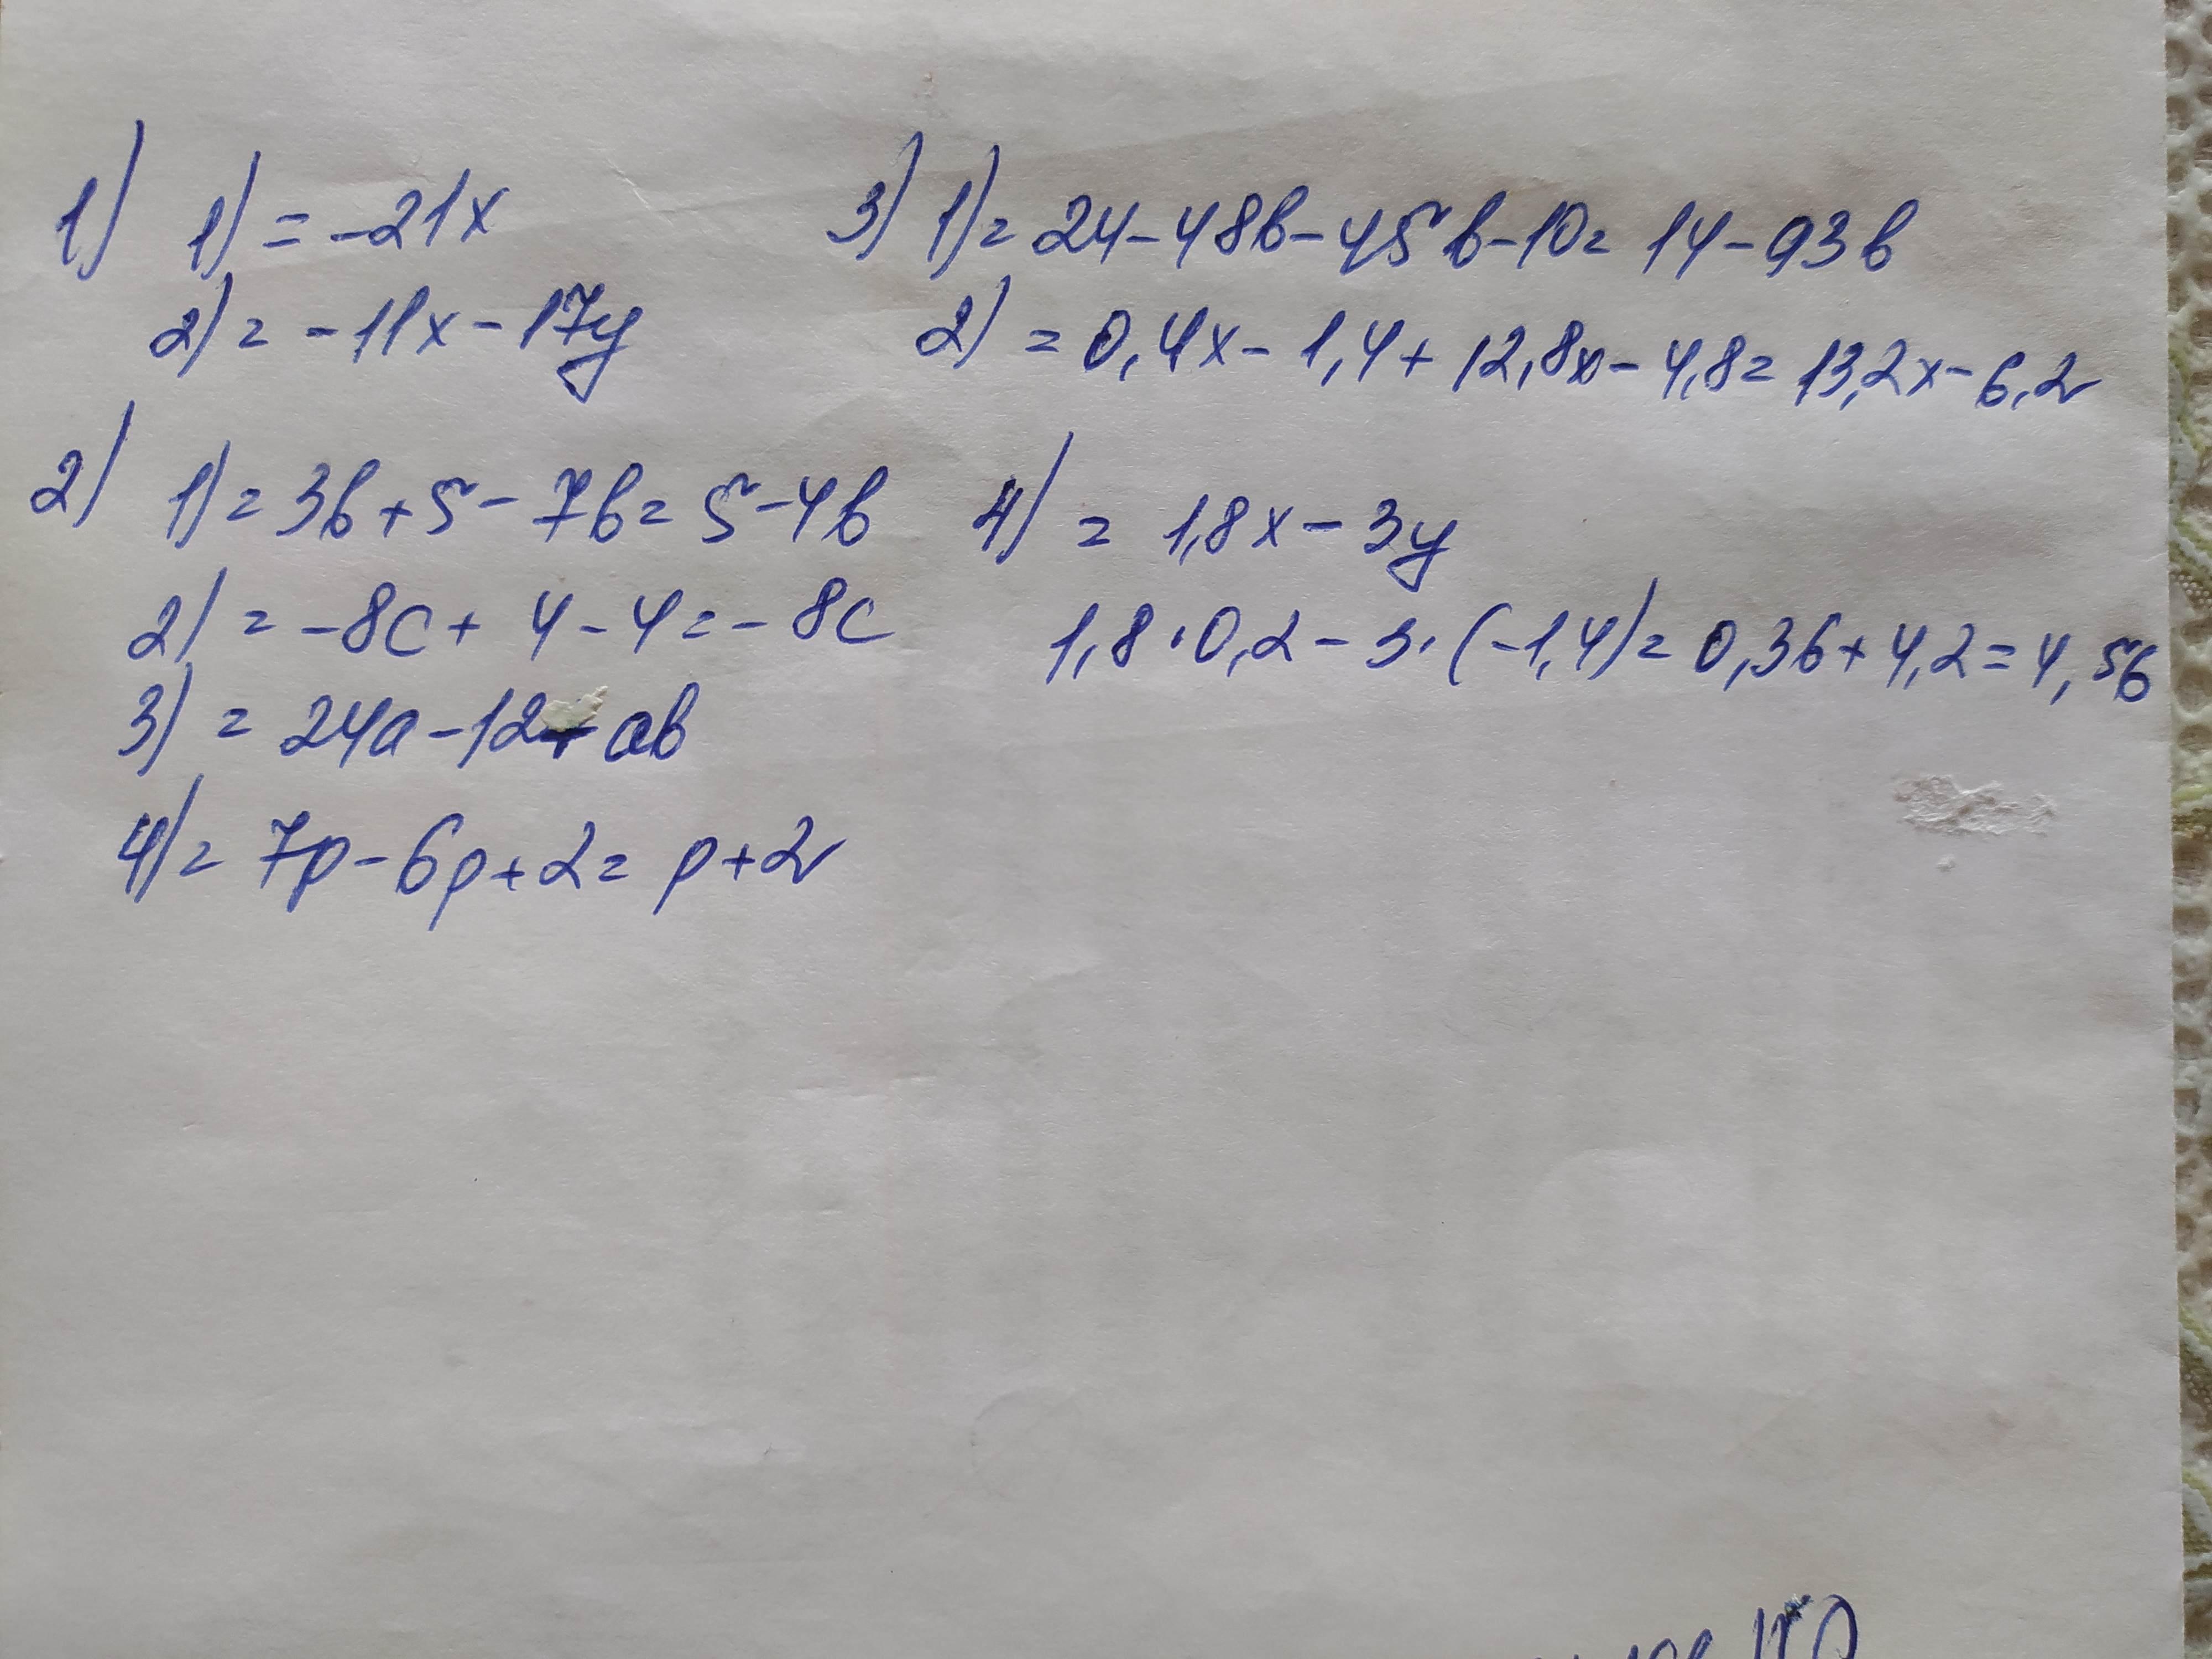 1) 1) = -21x
2) = -11x - 17y
2) 1) = 3b + 5 - 7b = 5 - 4b
2) = -8c + 4 - 4 = -8c
3) = 24a - 12 + ab
4) = 7p - 6p + 2 = p + 2
3) 1) = 24 - 48b - 45b - 10 = 14 - 93b
2) = 0,4x - 1,4 + 12,8x - 4,8 = 13,2x - 6,2
4) = 1,8x - 3y
1,8 · 0,2 - 3 · (-1,4) = 0,36 + 4,2 = 4,56